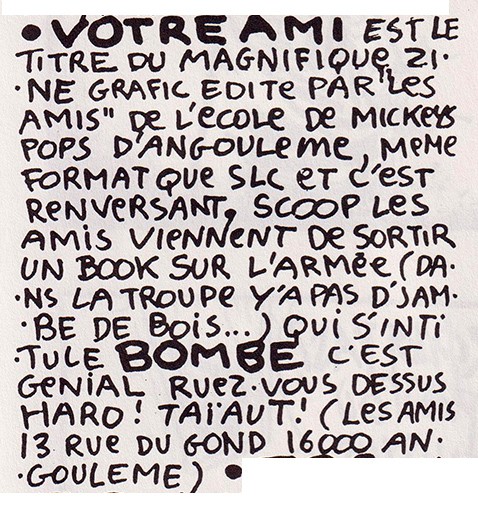 • VOTRE AMI EST LE
TITRE DU MAGNIFIQUE ZI-
-NE GRAFIC EDITE PAR "LES
AMIS" DE L'ECOLE DE MICKEYS
POPS D'ANGOULEME, MEME
FORMAT QUE SLC ET C'EST
RENVERSANT, SCOOP LES
AMIS VIENNENT DE SORTIR
UN BOOK SUR L'ARMÉE (DA-
-NS LA TROUPE Y'A PAS D'JAM-
-BE DE BOIS...) QUI S'INTI
-TULE BOMBE C'EST
GENIAL RUEZ-VOUS DESSUS
HARO! TAÏAUT! (LES AMIS
13 RUE DU GOND 16000 AN-
-GOULEME) •